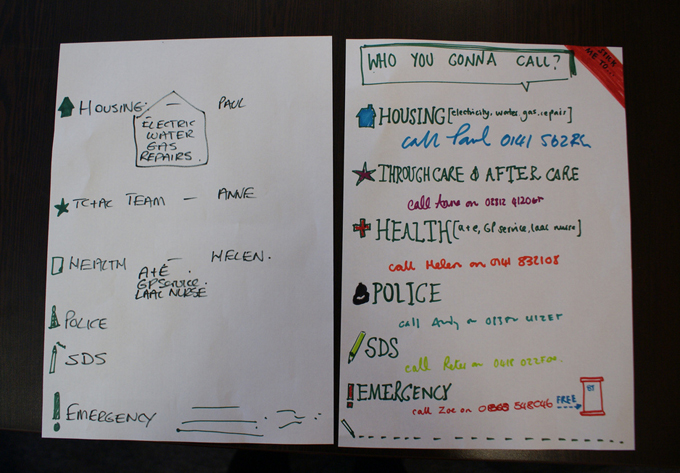 HOUSING - PAUL
ELECTRIC
WATER
GAS
REPAIRS.
TC+AC TEAM - ANNE
HEALTH - HELEN.
A+E
GP SERVICE.
LAAC NURSE
POLICE
SDS
EMERGENCY
WHO YOU GONNA CALL?
HOUSING [electricity, water, gas, repair]
call Paul 0141
THROUGHCARE & AFTER CARE
call Anne on
HEALTH [a+e, GP service, laac nurse]
call Helen on 0141 832108
POLICE
call Andy on
SDS
call Peter on
EMERGENCY
call Zoe on 548046 FREE BT